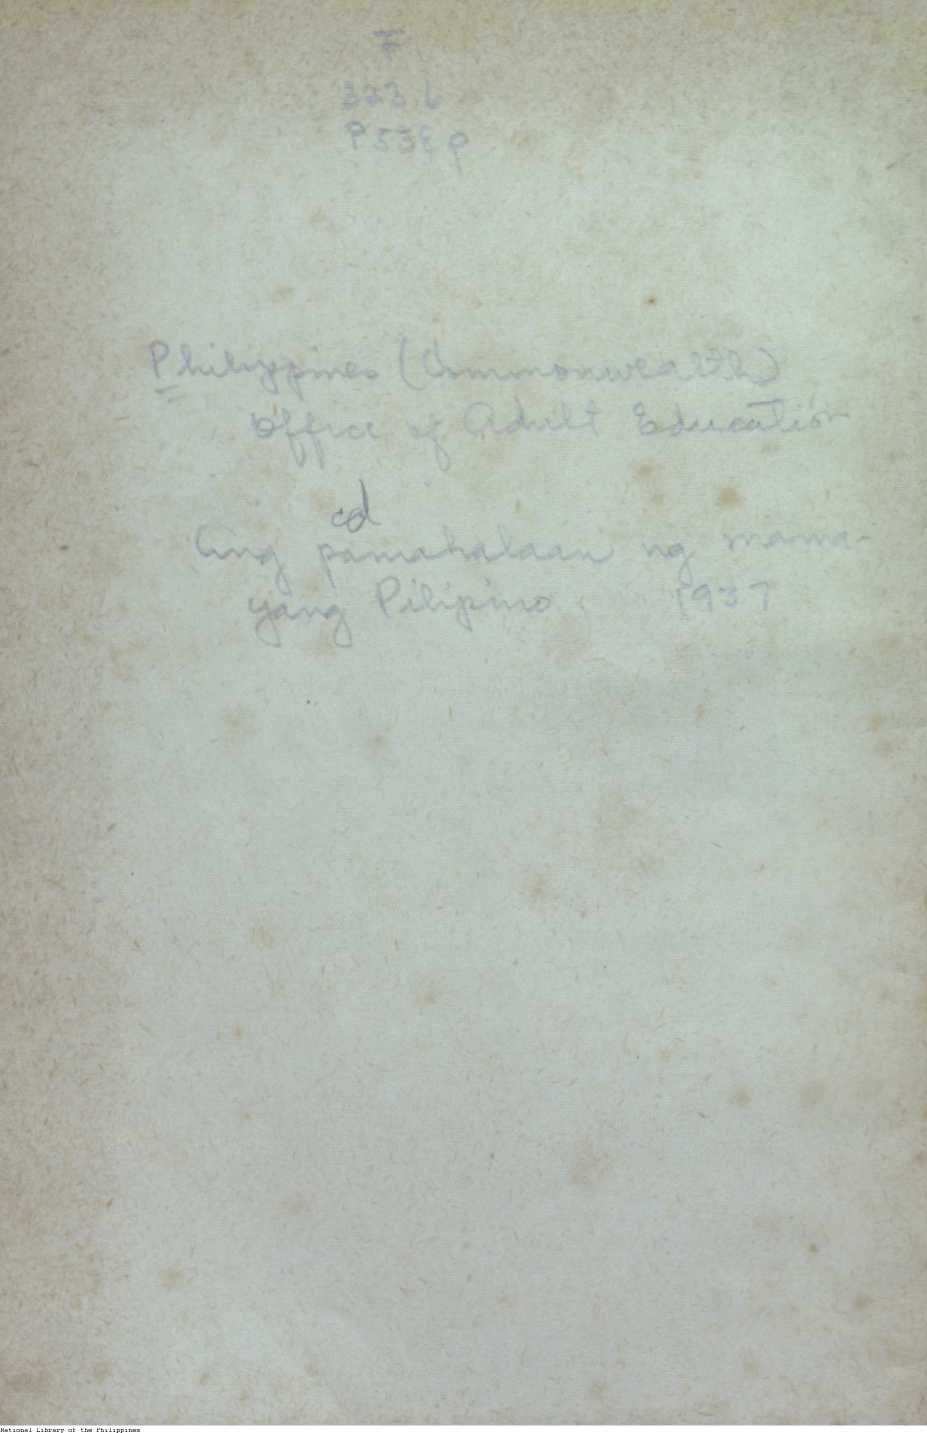 F
323.6
P53Ep
Philippines (Commonwealth)
Office of Adult Education
cd
Ang pamahalaan ng mama-
yang Pilipino. 1937
National Library of the Philippines